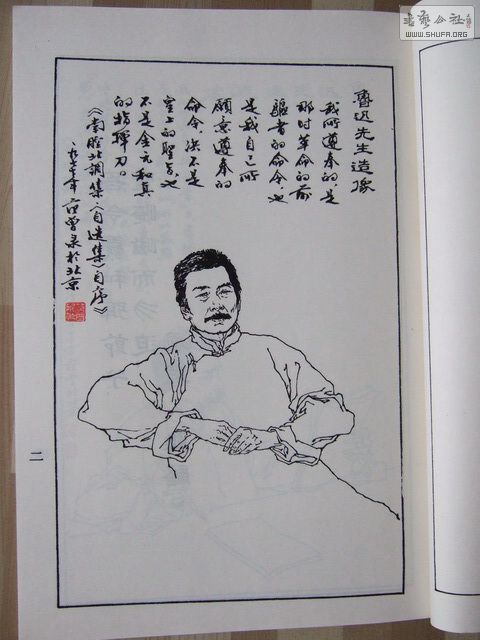 魯迅先生造像
我所遵奉的，是
那时革命的前
驱者的命令，也
是我自己所
愿意遵奉的
命令，决不是
皇上的圣旨，也
不是金元和真
的指挥刀。
《南腔北調集〈自选集〉自序》
一九七七年 范曾录於北京
二
書藝公社
WWW.SHUFA.ORG